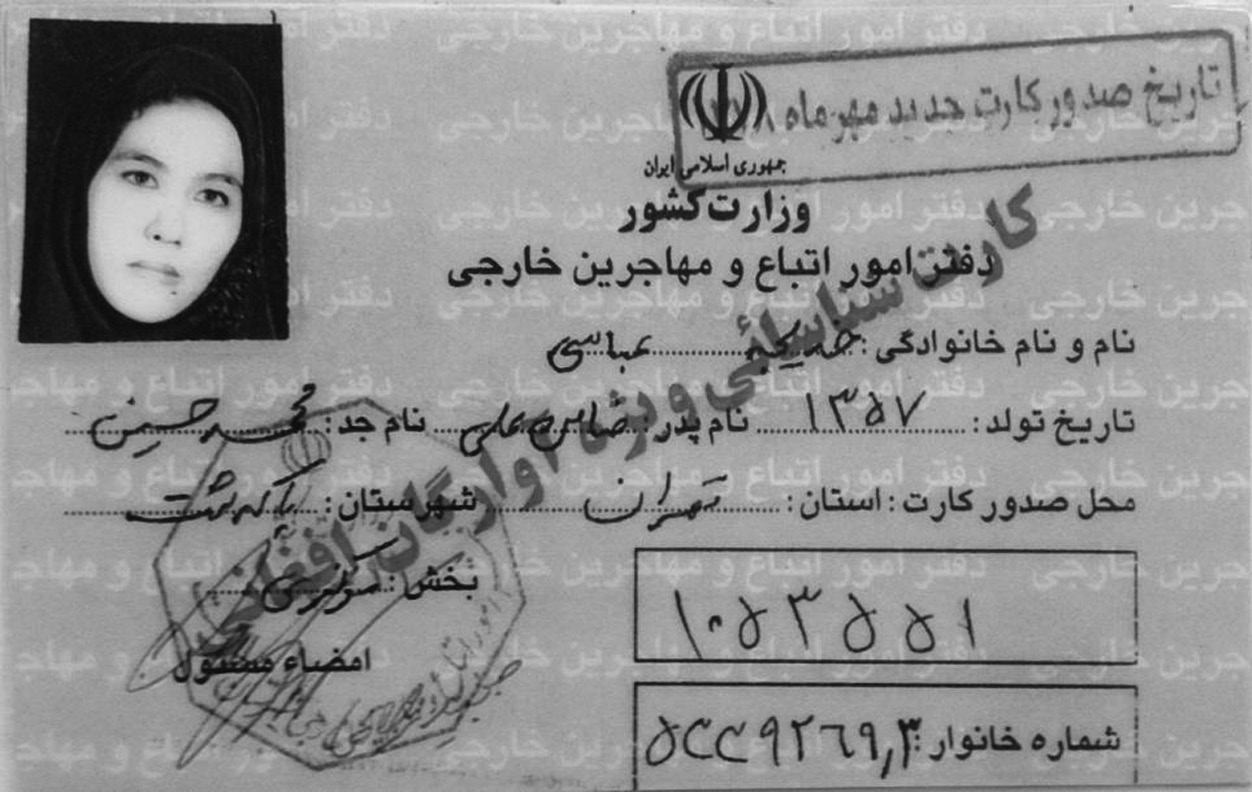 تاریخ صدور کارت جدید مهرماه
جمهوری اسلامی ایران
وزارت کشور
دفتر امور اتباع و مهاجرین خارجی
کارت شناسائی ویژه آوارگان افغانی
نام و نام خانوادگی: خدیجه عباسی
تاریخ تولد: ۱۳۵۷ نام پدر: علی نام جد: محمد حسین
محل صدور کارت: استان: تهران شهرستان: پاکدشت
بخش: مرکزی
۱۰۵۳۵۵۱
امضاء مسئول
شماره خانوار: